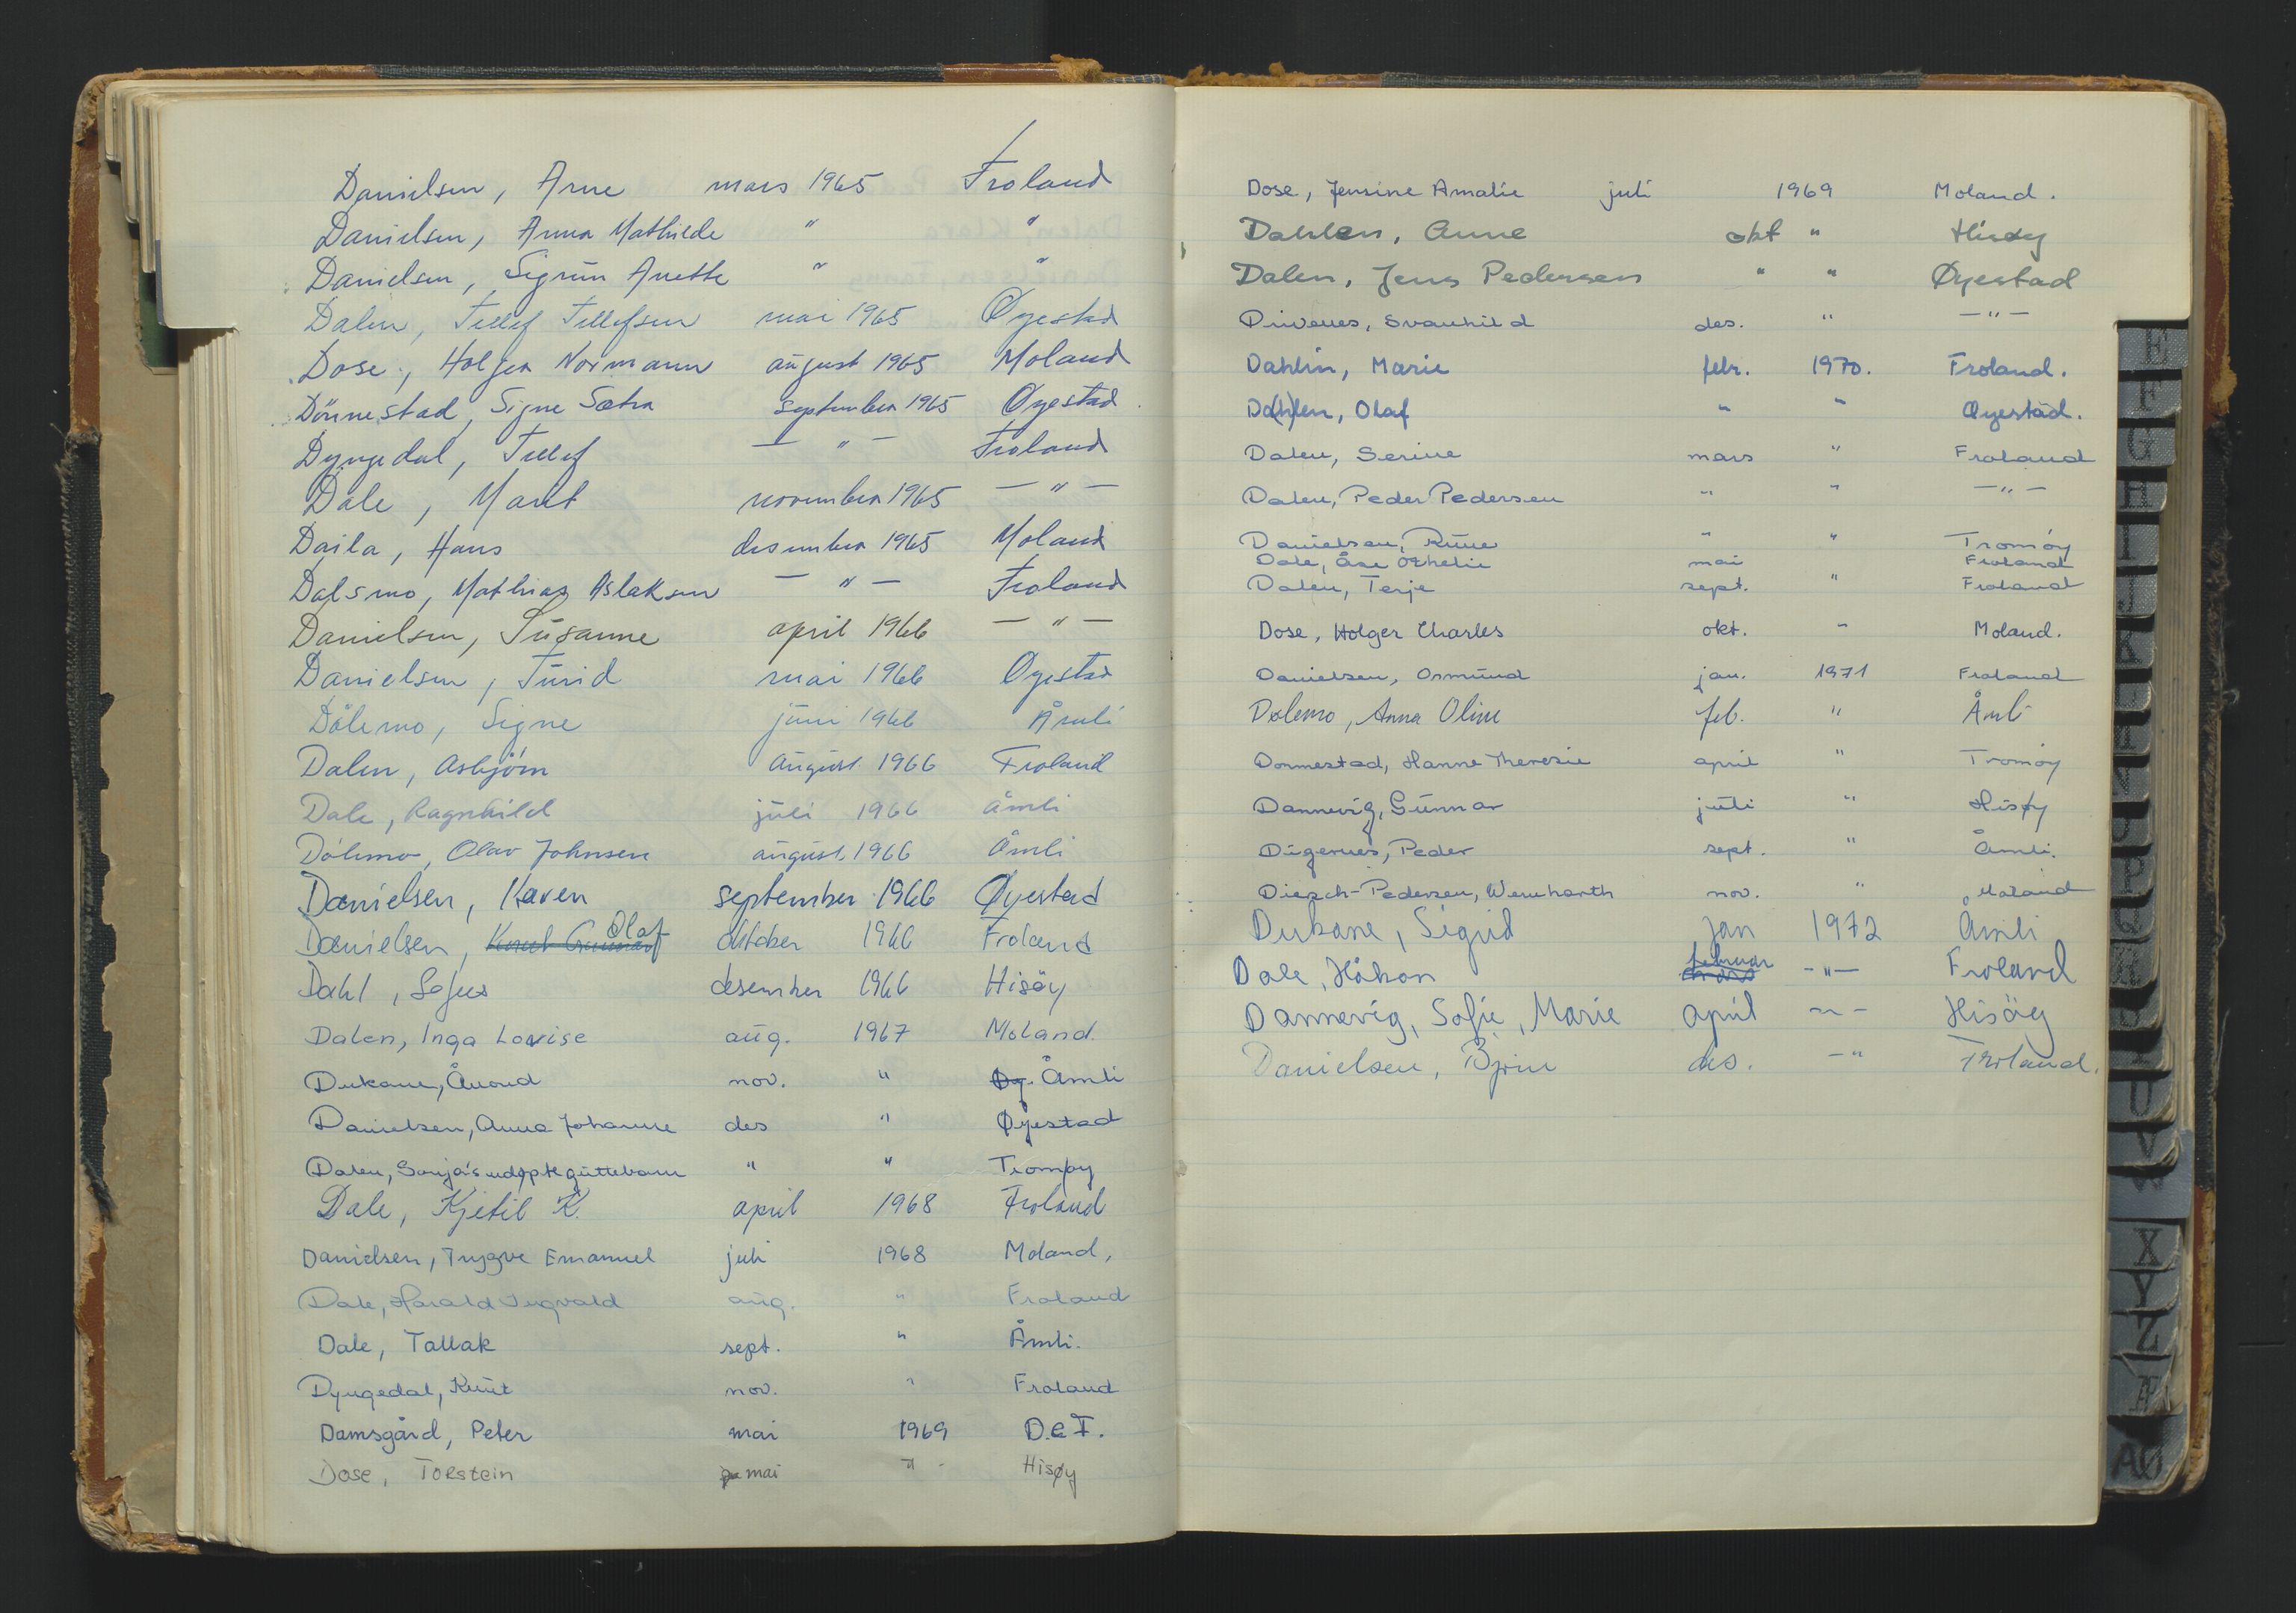 Danielsen, Arne mars 1965 Froland
Danielsen, Anna Mathilde " "
Danielsen, Sigrun Anette " "
Dalen, Tellef Tellefsen mai 1965 Øyestad
Dose, Holger Normann august 1965 Moland
Dönnestad, Signe Sætra september 1965 Øyestad
Dyngedal, Tellef — " — Froland
Dale, Marit november 1965 — " —
Daila, Hans desember 1965 Moland
Dalsmo, Mathias Aslaksen — " — Froland
Danielsen, Susanne april 1966 — " —
Danielsen, Turid mai 1966 Øyestad
Dölemo, Signe juni 1966 Åmli
Dalen, Asbjörn august 1966 Froland
Dale, Ragnhild juli 1966 Åmli
Dölemo, Olav Johnsen august 1966 Åmli
Danielsen, Karen september 1966 Øyestad
Danielsen, Olaf oktober 1966 Froland
Dahl, Sofus desember 1966 Hisöy
Dalen, Inga Lovise aug. 1967 Moland.
Dukane, Ånond nov. " Øy. Åmli
Danielsen, Anna Johanne des " Øyestad
Dalen, Sonja's udøpte guttebarn " " Tromøy
Dale, Kjetil K. april 1968 Froland
Danielsen, Trygve Emanuel juli 1968 Moland,
Dale, Harald Ingvald aug. " Froland
Dale, Tallak sept. " Åmli.
Dyngedal, Knut nov. " Froland
Damsgård, Peter mai 1969 D.e.F.
Dose, Torstein mai " - Hisøy
Dose, Jensine Amalie juli 1969 Moland.
Dahlen, Anne okt " Hisøy
Dalen, Jens Pedersen " " Øyestad
Drivenes, Svanhild des. " — " —
Dahlin, Marie febr. 1970. Froland.
Da(h)len, Olaf " " Øyestad.
Dalen, Serine mars " Froland
Dalen, Peder Pedersen " " — " —
Danielsen, Rune " " Tromöy
Dale, Åse Othelie mai Froland
Dalen, Terje sept. " Froland
Dose, Holger Charles okt. " Moland.
Danielsen, Osmund jan. 1971 Froland
Dølemo, Anna Oline feb. " Åmli
Donnestad, Hanne Theresie april " Tromöy
Dannevig, Gunnar juli " Hisøy
Digernes, Peder sept. " Åmli.
Diesch-Pedersen, Wernharth nov. " Moland
Dukane, Sigrid jan 1972 Åmli
Dale, Håkon februar - " — Froland
Dannevig, Sofie, Marie april - " - Hisöy
Danielsen, Bjørn des. - " Froland.
E
F
G
H
I
J
K
P
U
V
X
Y
Z
Æ
AØ